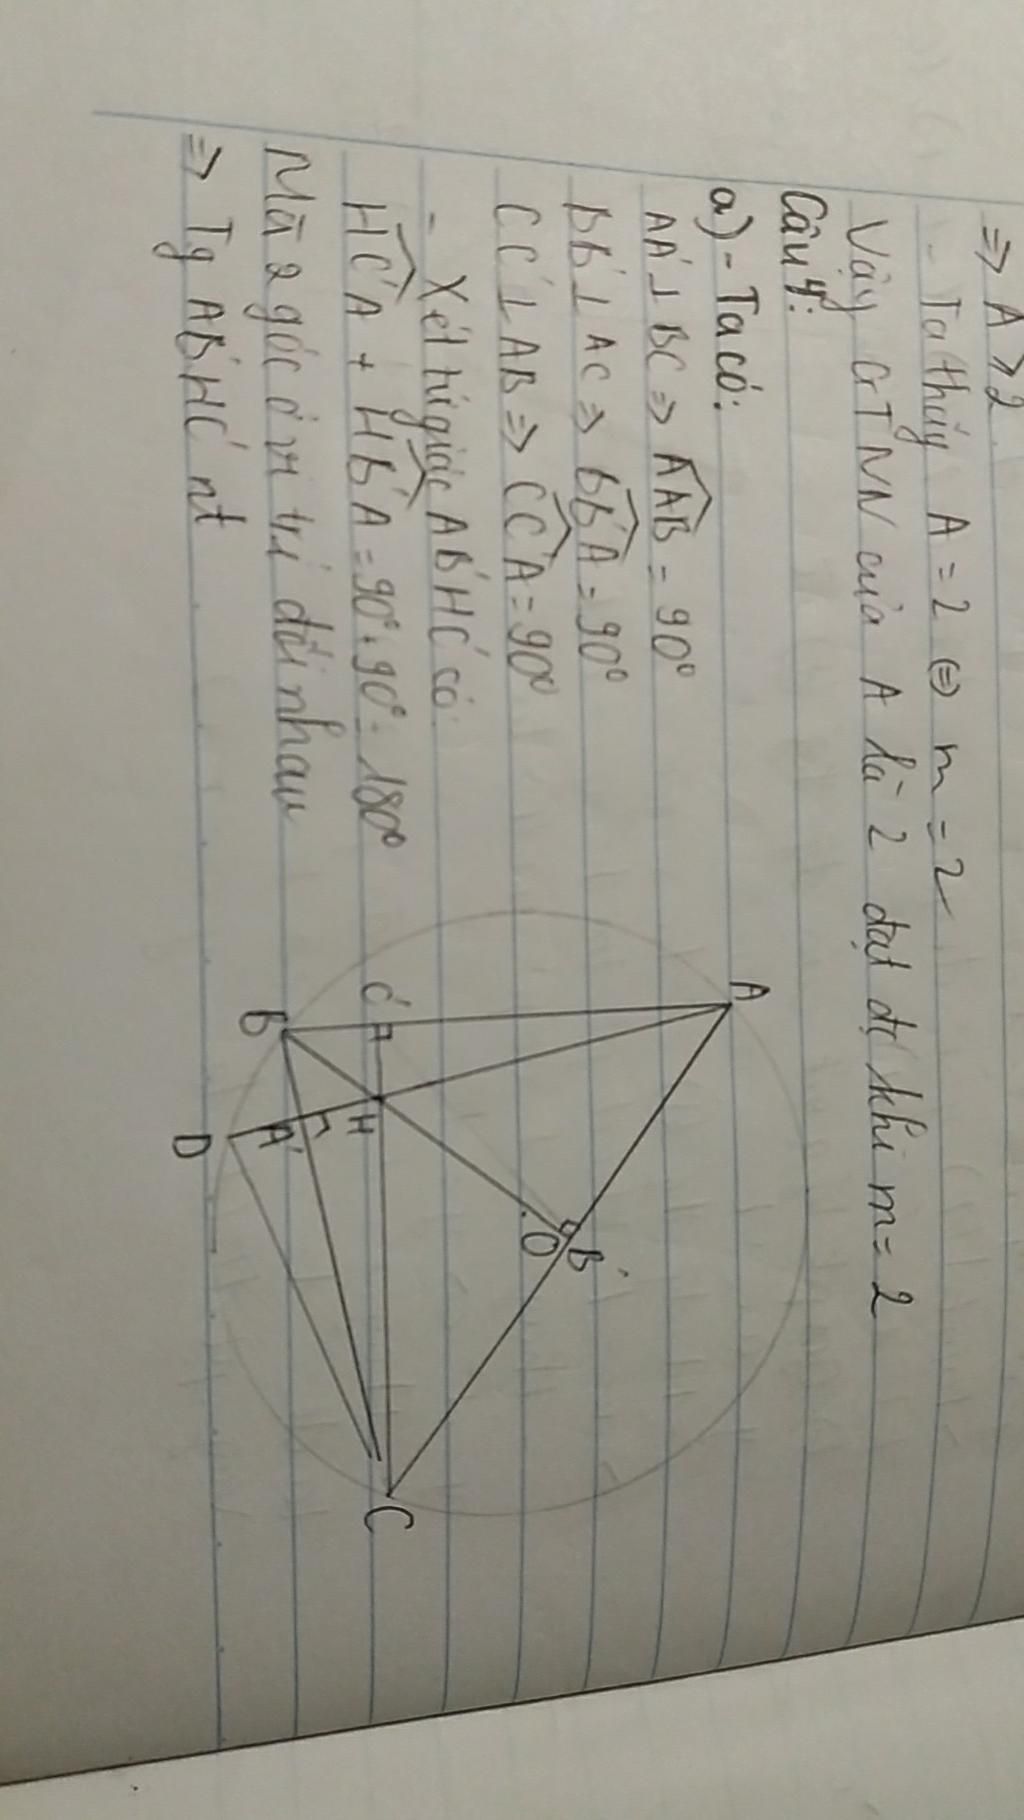 => A ≥ 2
- Ta thấy A = 2 <=> m = 2
Vậy GTNN của A là 2 đạt đc khi m = 2
Câu 4:
a) - Ta có:
AA' ⊥ BC => AA'B = 90°
BB' ⊥ AC => BB'A = 90°
CC' ⊥ AB => CC'A = 90°
- Xét tứ giác AB'HC' có
HC'A + HB'A = 90° + 90° = 180°
Mà 2 góc ở vị trí đối nhau
=> Tg AB'HC' nt
A
B'
O
C'
H
C
B
A'
D